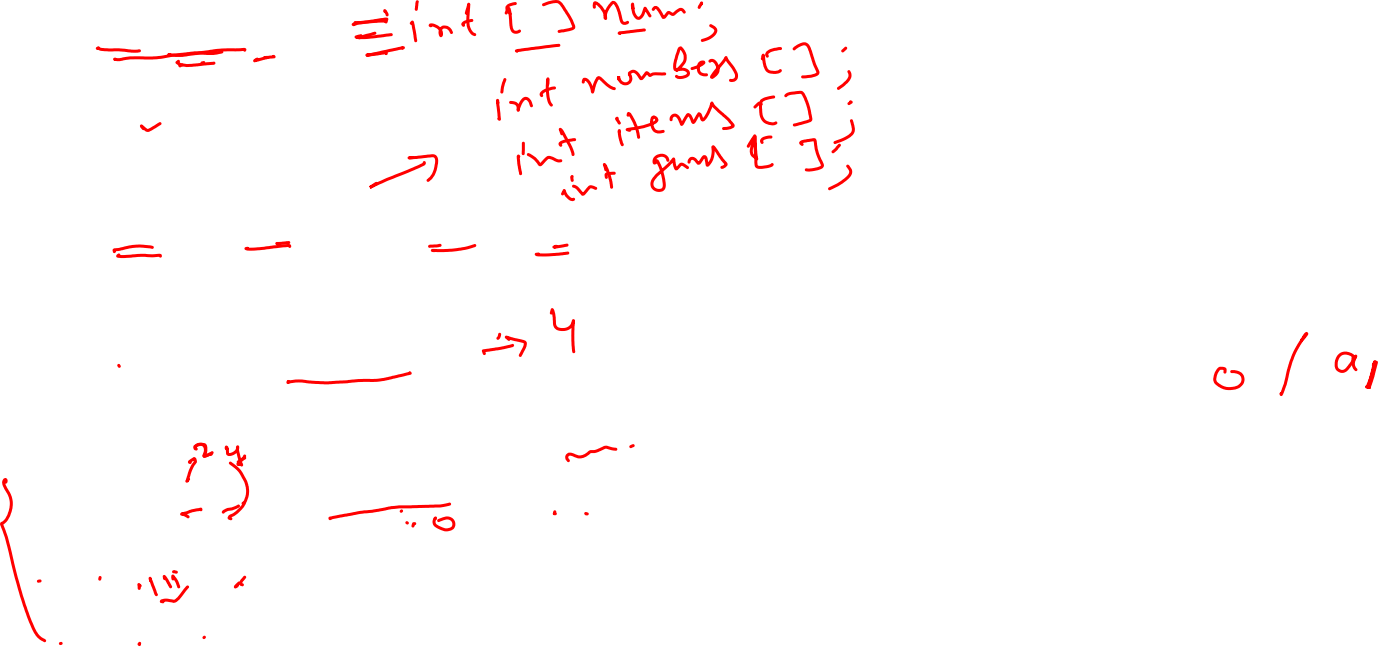 int [ ] num;
int numbers [ ];
int items [ ];
int guns [ ];
4
0 / a,
2 4
0